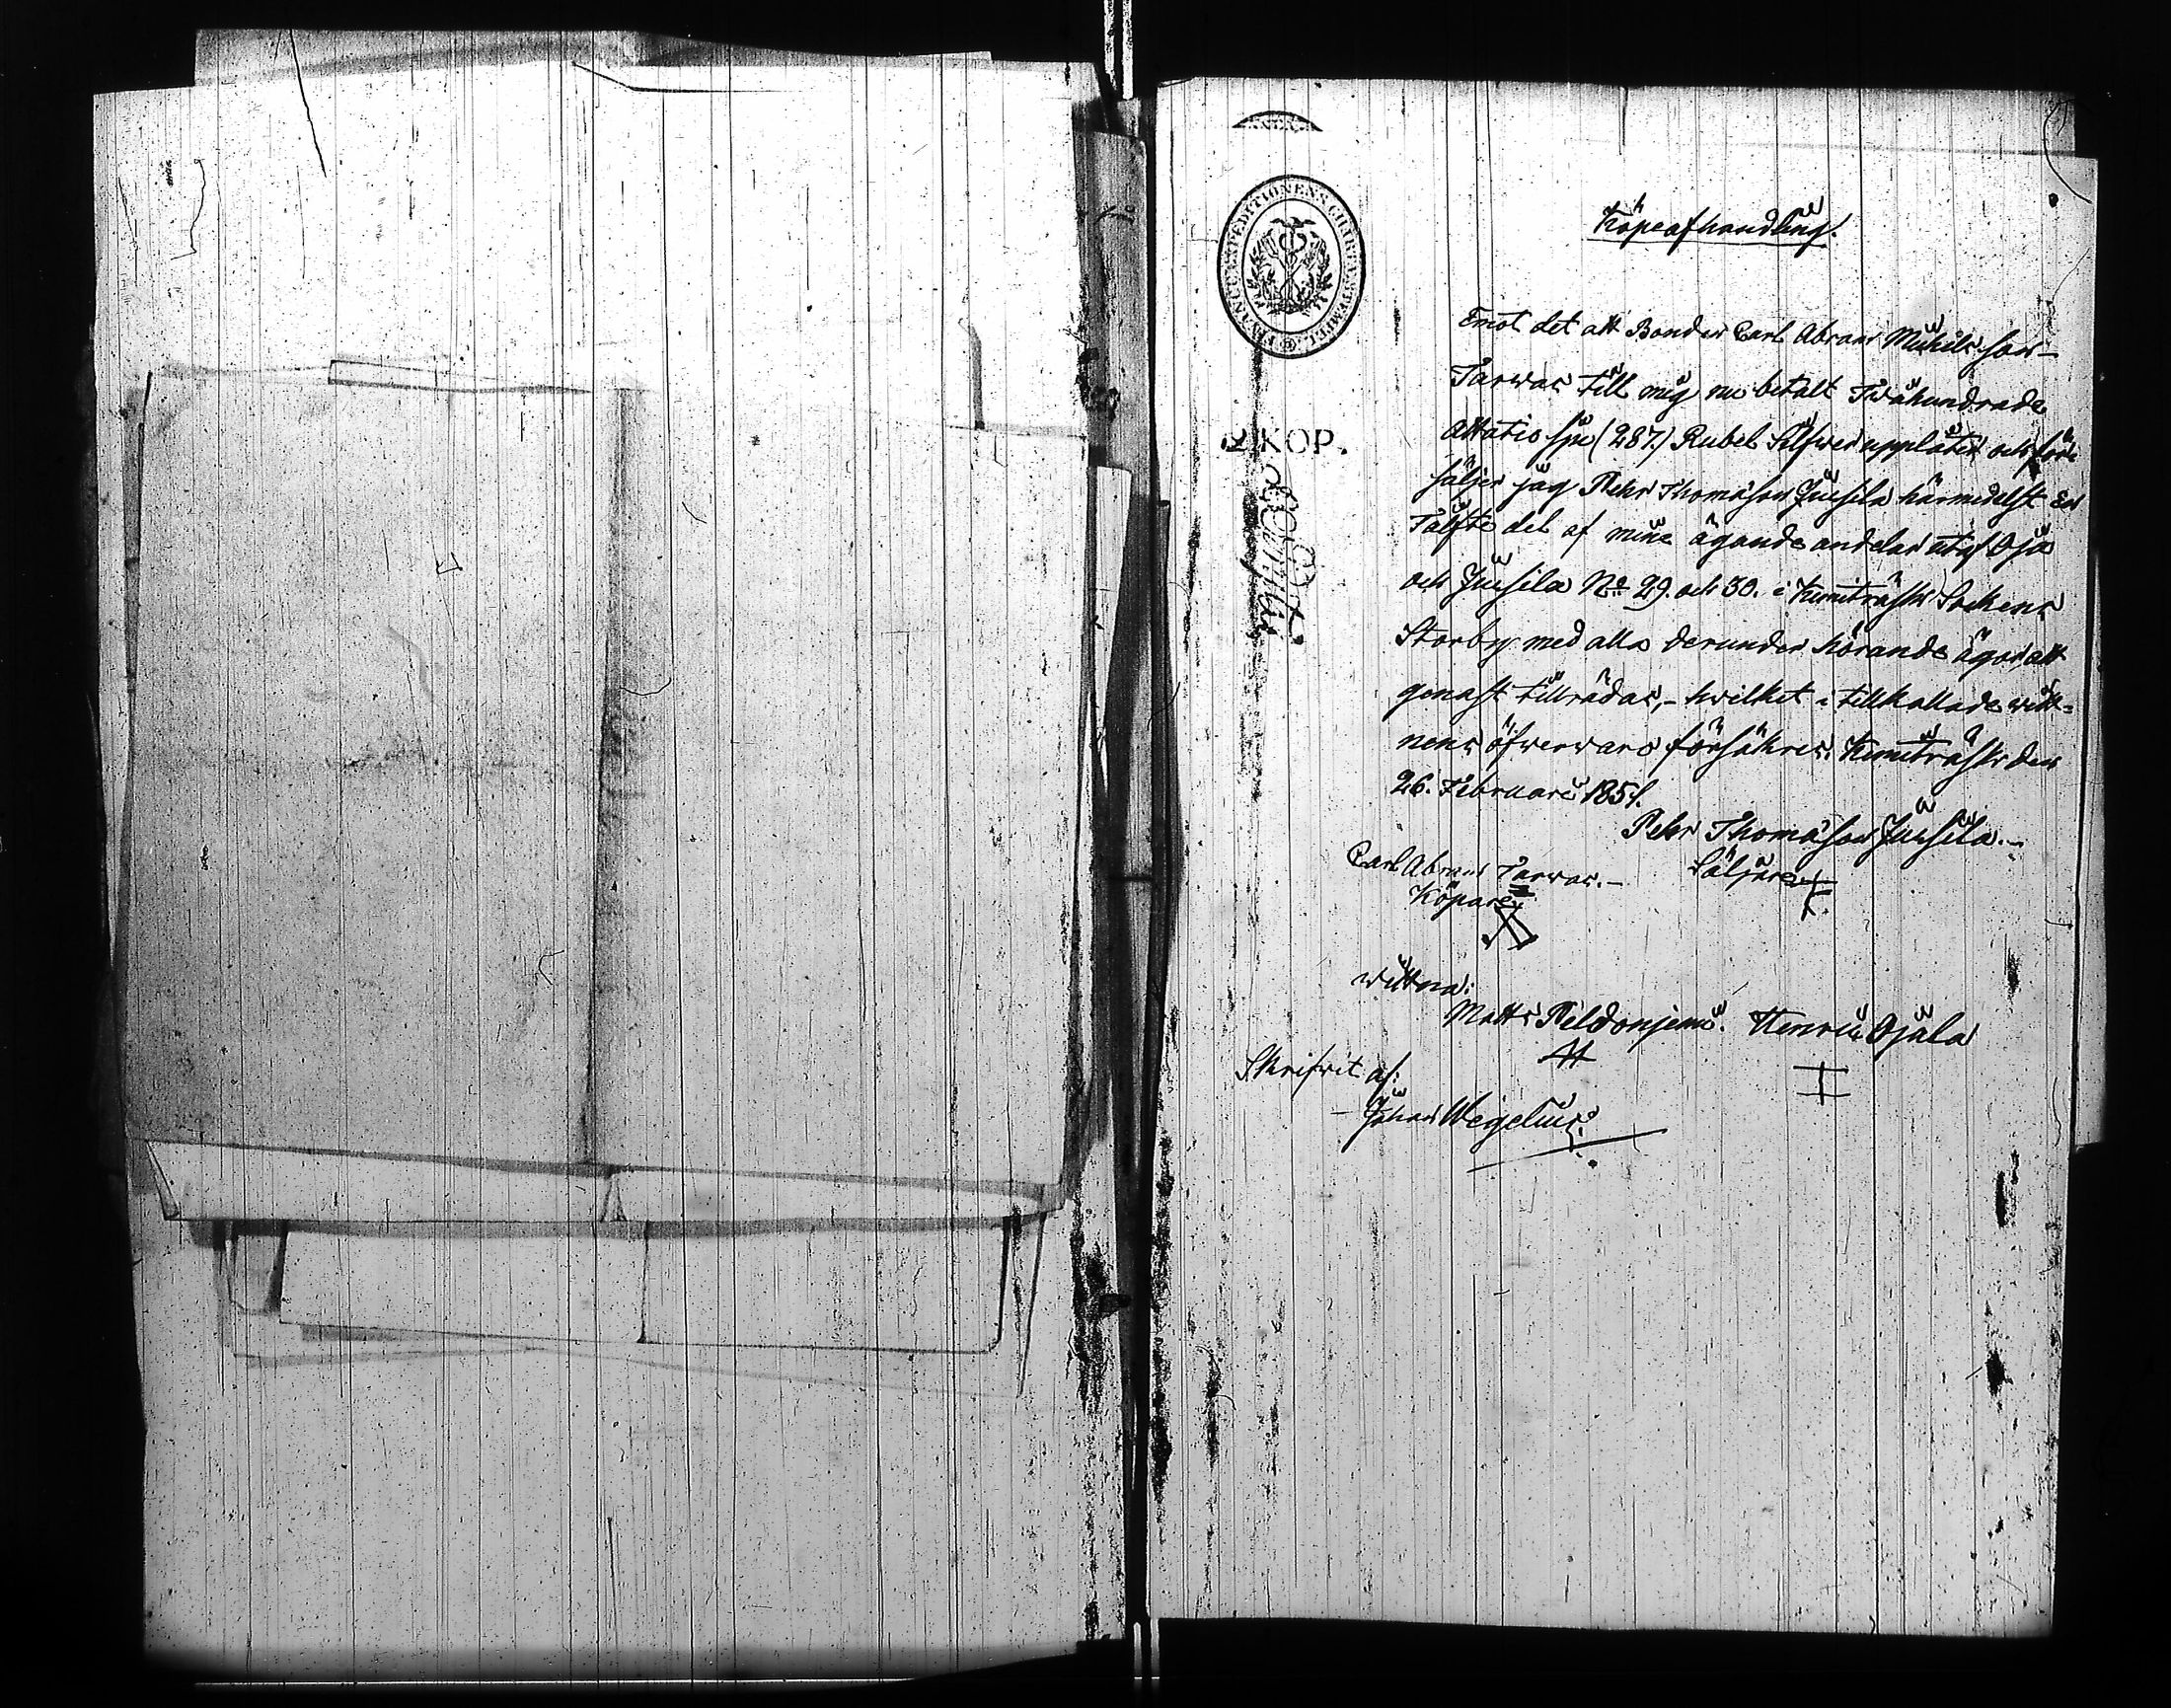 FINANCE EXPEDITIONENS CHARTÆ STEMPEL
2 KOP.
Köpeafhandling.
Emot det att Bonden Carl Abram Mickels son-
Tarwas till mig nu betalt Twåhundrade
Attatio sju (287.) Rubel Silfwer upplåter och för-
säljer jag Pehr Thomasson Juusila härmedelst En
Tålfte del af mine ägande andelar utaf Oja
och Juusila No 29. och 30. i Kemiträsk Sockens
Storby med alla derunder hörande ägor, att
genast tillrädas,- hwilket i tillkallade witt=
nens öfwerwaro försäkras. Kemiträsk den
26. Februari 1851.
Pehr Thomasson Juusila.-
Säljare
Carl Abram Tarwas.-
Köpare
Wittna:
Matts Peldoniemi. Henric Ojala
Skrifwit af:
Johan Wegelius.